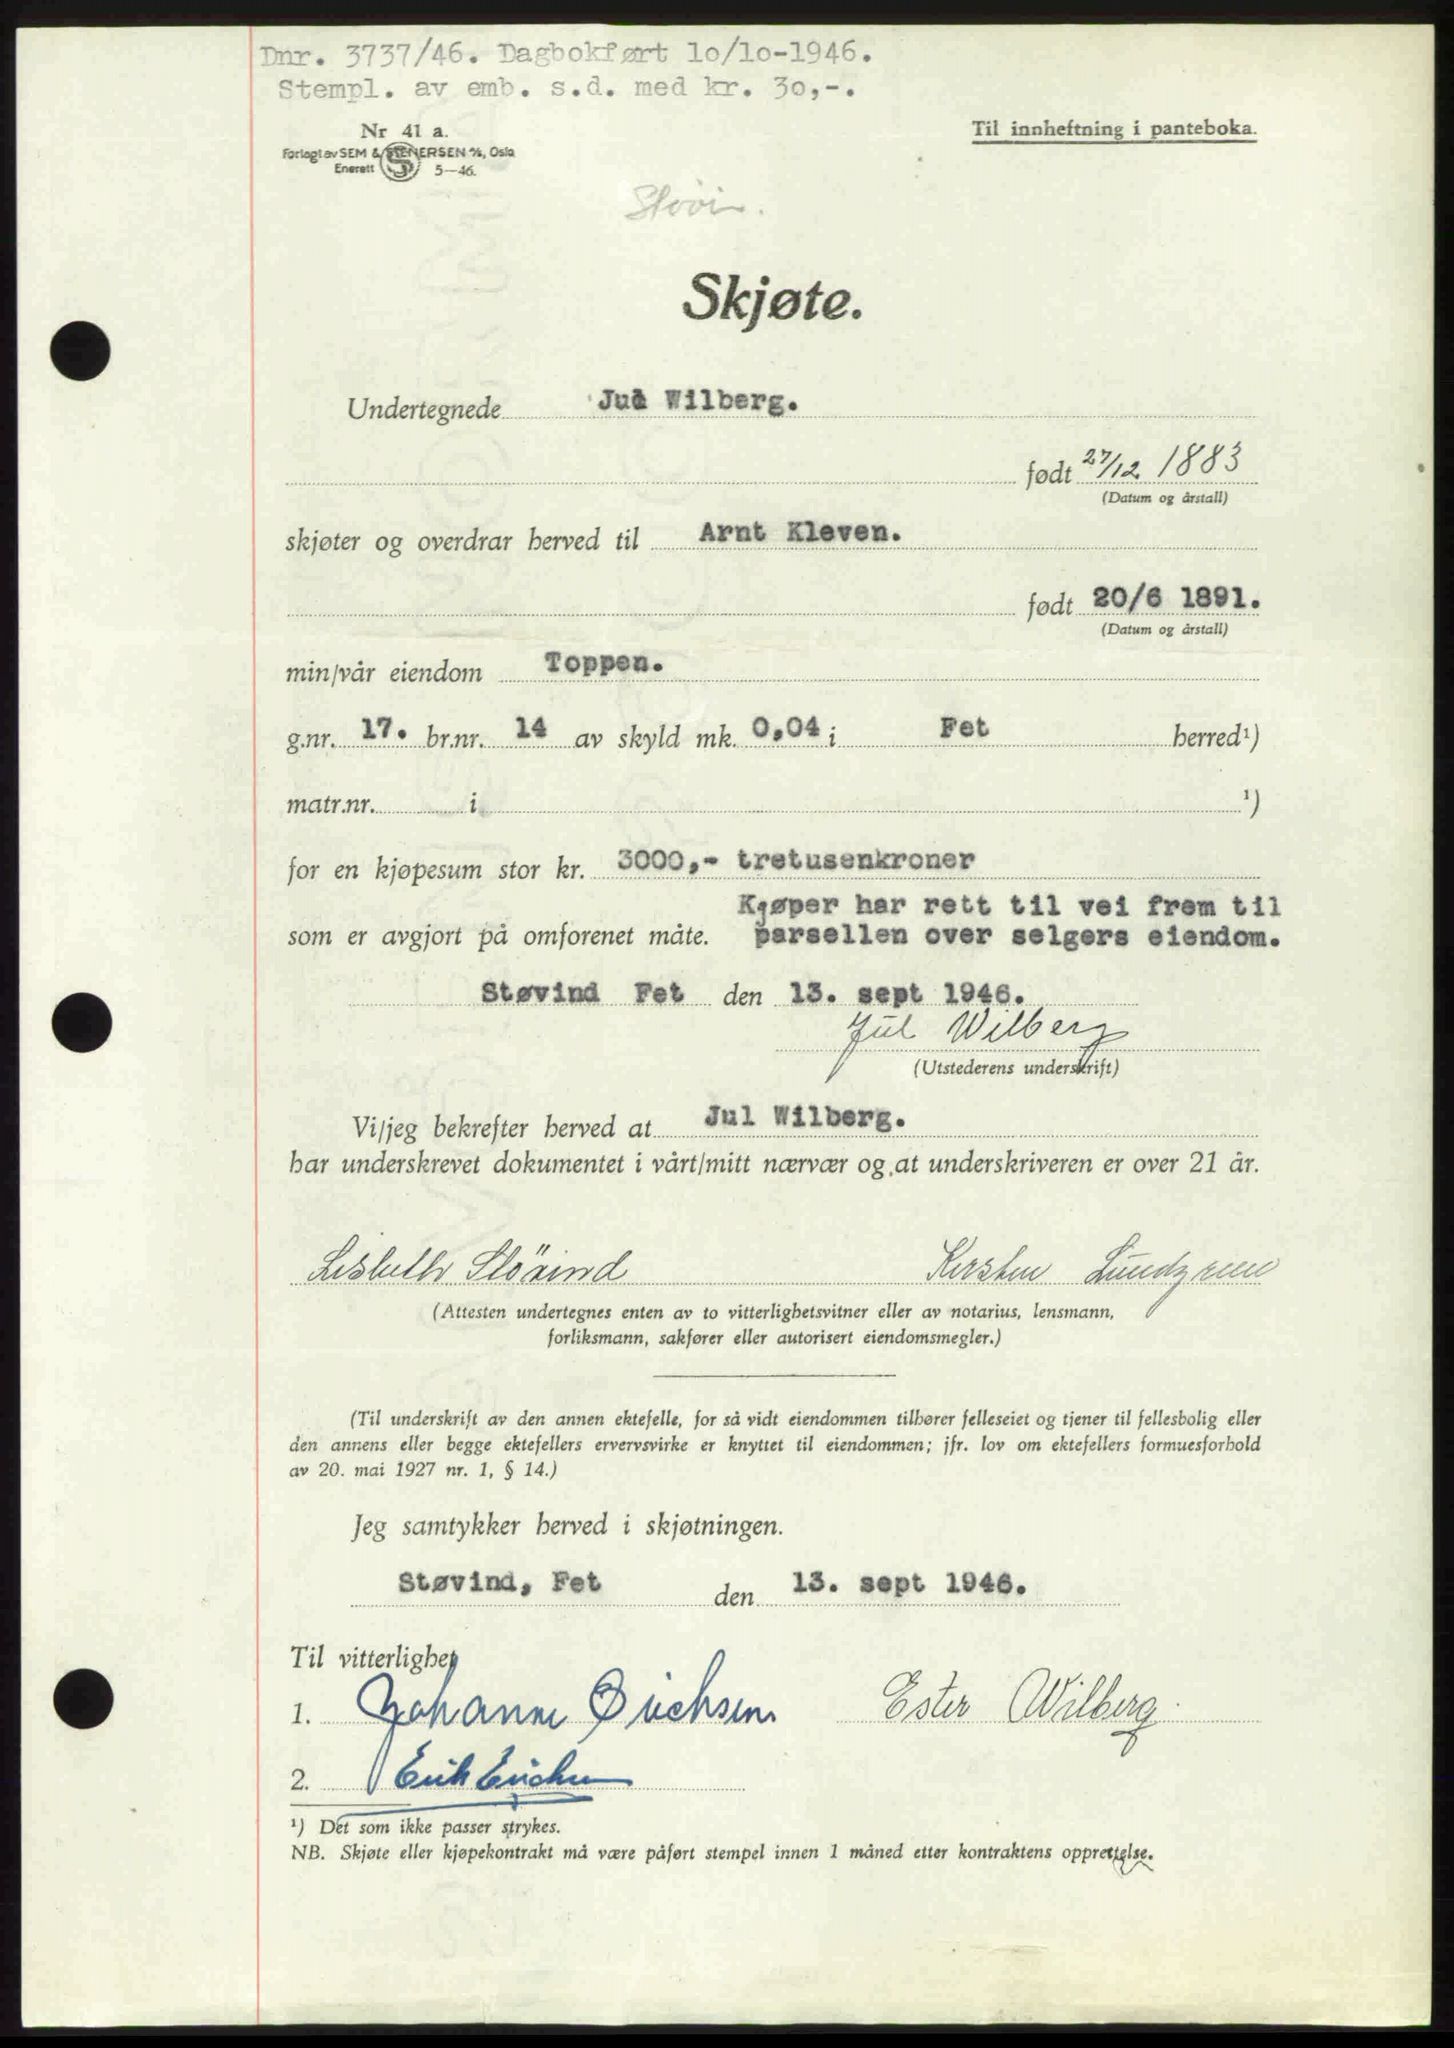 Dnr. 3737/46. Dagbokført 10/10-1946.
Stempl. av emb. s.d. med kr. 30,-.
Nr 41 a.
Forlagt av SEM & STENERSEN A/S, Oslo
Enerett 5—46.
Til innheftning i panteboka.
Skjøte.
Undertegnede Jul Wilberg.
født 27/12 1883
(Datum og årstall)
skjøter og overdrar herved til Arnt Kleven.
født 20/6 1891.
(Datum og årstall)
min/vår eiendom Toppen.
g.nr. 17. br.nr. 14 av skyld mk. 0,04 i Fet herred¹)
matr.nr. i ¹)
for en kjøpesum stor kr. 3000,- tretusenkroner
Kjøper har rett til vei frem til
som er avgjort på omforenet måte. parsellen over selgers eiendom.
Støvind Fet den 13. sept 1946.
Jul Wilberg
(Utstederens underskrift)
Vi/jeg bekrefter herved at Jul Wilberg.
har underskrevet dokumentet i vårt/mitt nærvær og at underskriveren er over 21 år.
Lisbeth Störind Kirsten Lundgreen
(Attesten undertegnes enten av to vitterlighetsvitner eller av notarius, lensmann,
forliksmann, sakfører eller autorisert eiendomsmegler.)
(Til underskrift av den annen ektefelle, for så vidt eiendommen tilhører felleseiet og tjener til fellesbolig eller
den annens eller begge ektefellers ervervsvirke er knyttet til eiendommen; jfr. lov om ektefellers formuesforhold
av 20. mai 1927 nr. 1, § 14.)
Jeg samtykker herved i skjøtningen.
Støvind, Fet den 13. sept 1946.
Til vitterlighet
1. Johanne Erichsen Ester Wilberg.
2. Erik Erichsen
¹) Det som ikke passer strykes.
NB. Skjøte eller kjøpekontrakt må være påført stempel innen 1 måned etter kontraktens opprettelse.